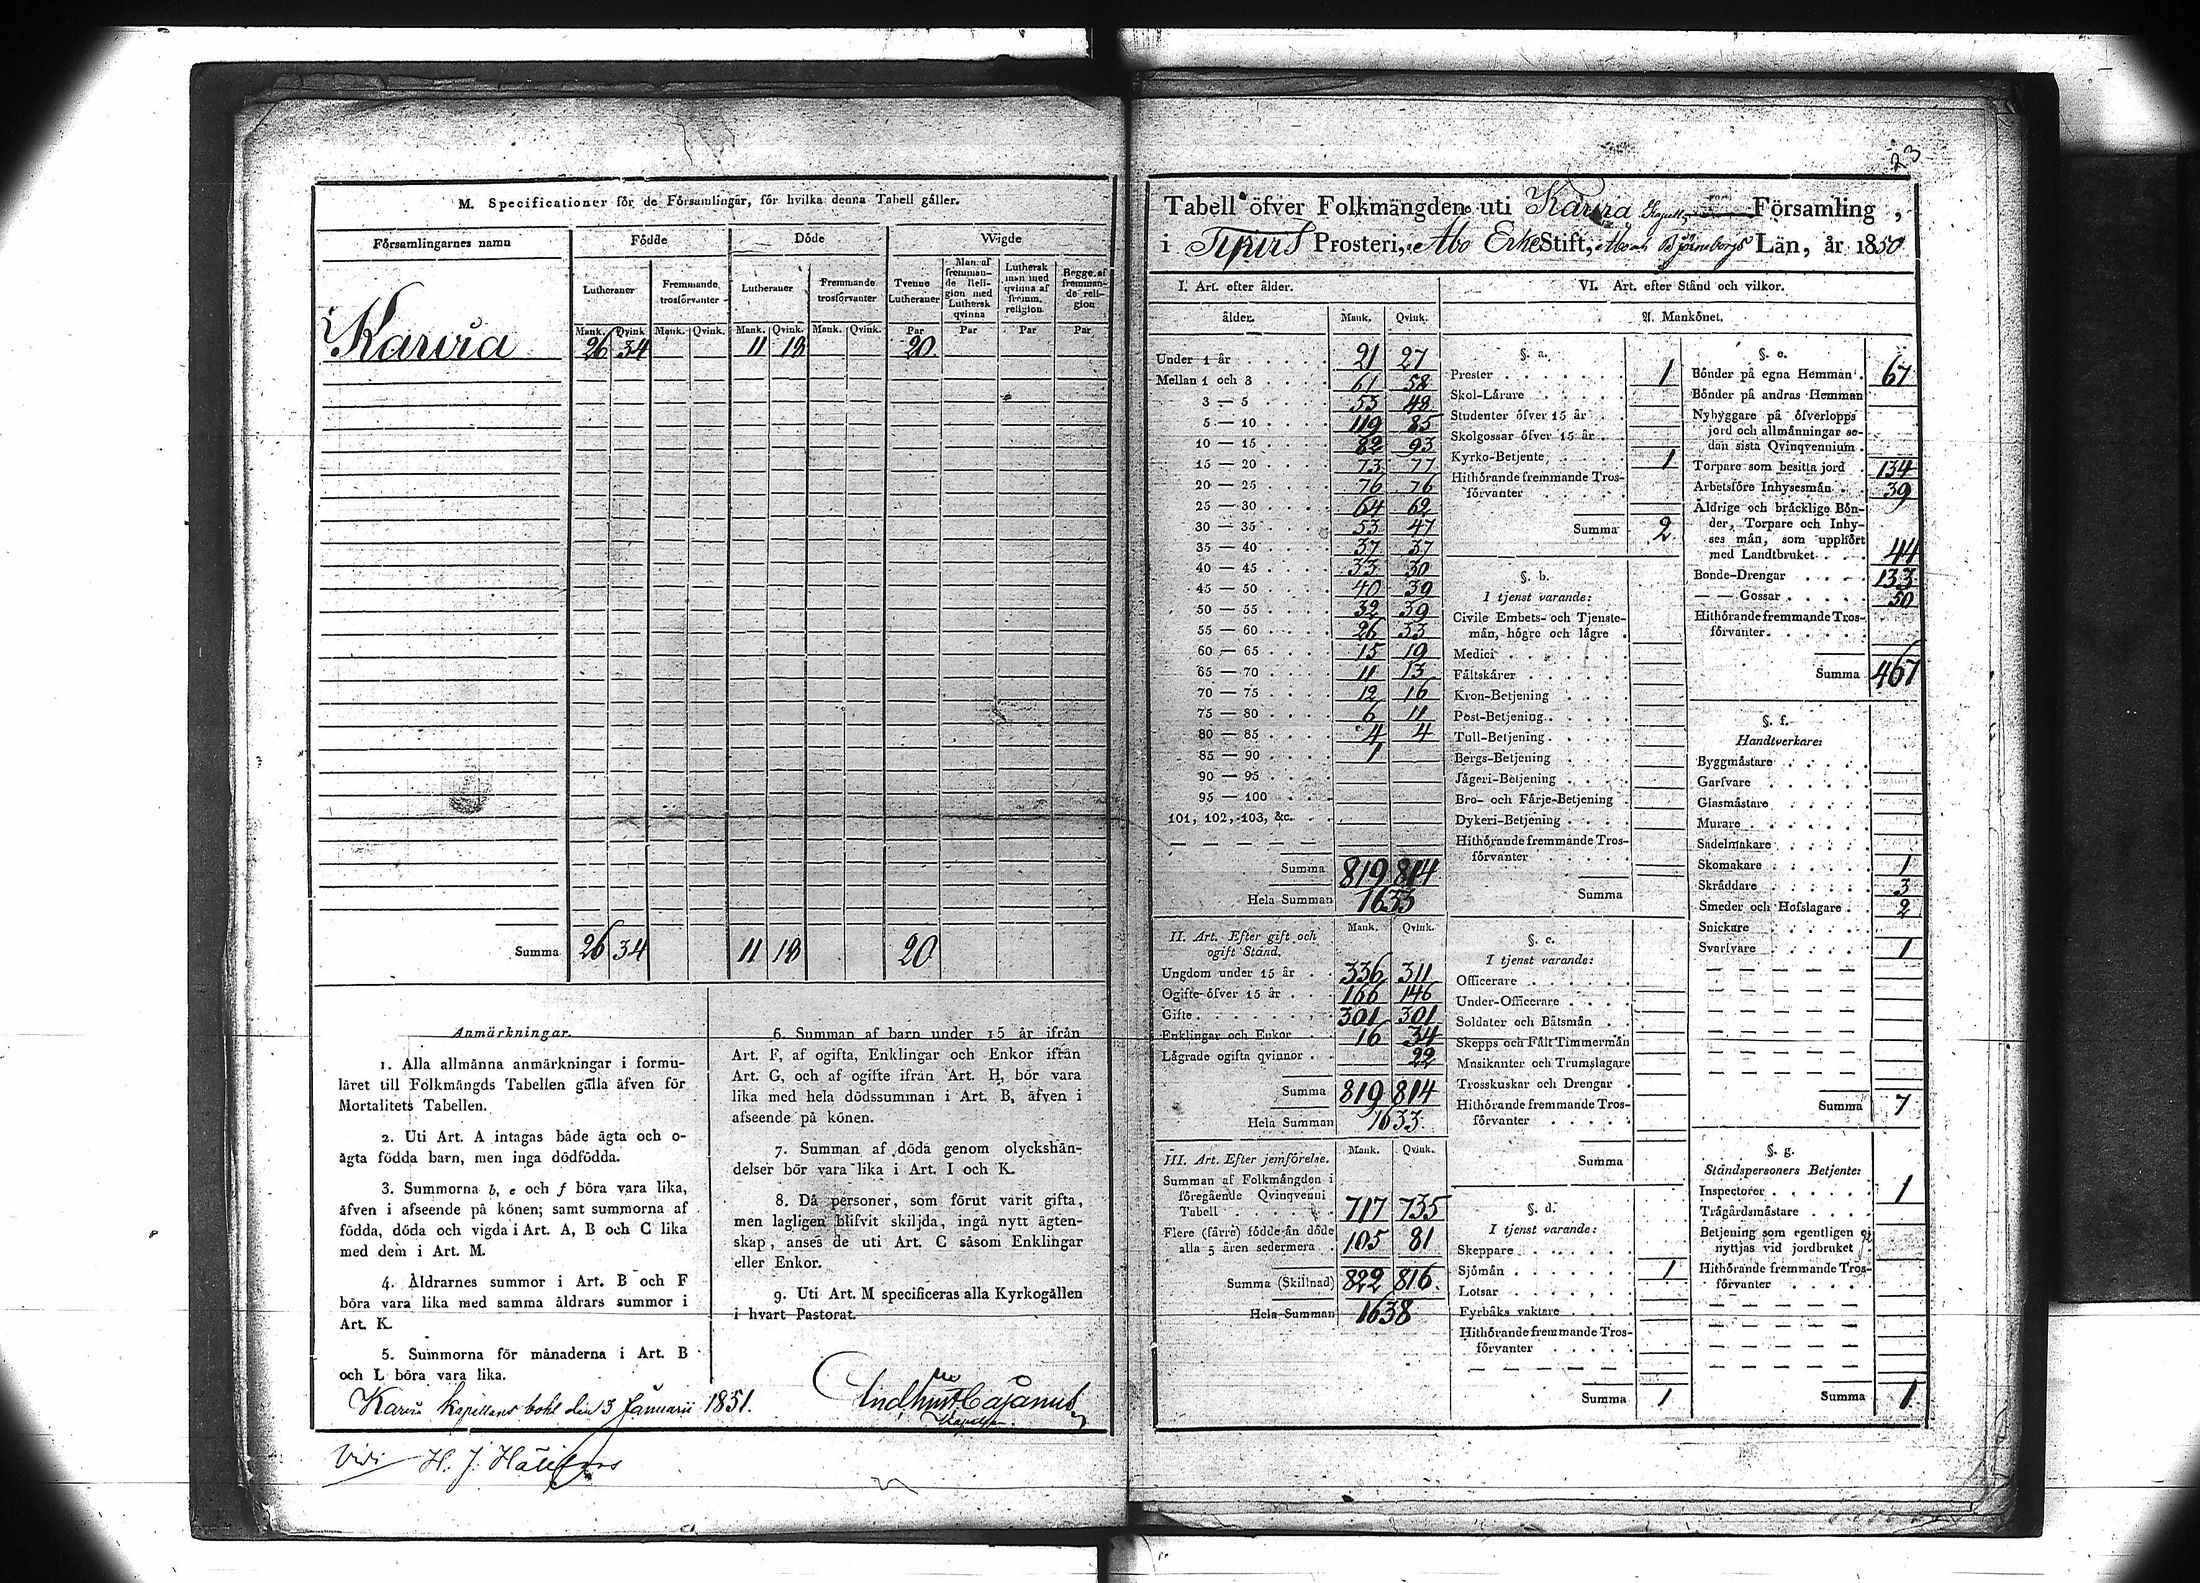 M. Specificationer för de Församlingar, för hvilka denna Tabell gäller.
Församlingarnes namn Födde Döde Wigde
Lutheraner Fremmande trosförvanter Lutheraner Fremmande trosförvanter Tvenne Lutheraner Man af fremmande Religion med Luthersk qvinna Luthersk man med qvinna af fremm. religion Begge af fremmande religion
Mank. Qvink. Mank. Qvink. Mank. Qvink. Mank. Qvink. Par Par Par Par
Karvia 26 34 11 18 20
Summa 26 34 11 18 20
Anmärkningar.
1. Alla allmänna anmärkningar i formu-
läret till Folkmängds Tabellen gälla äfven för
Mortalitets Tabellen.
2. Uti Art. A intagas både ägta och o-
ägta födda barn, men inga dödfödda.
3. Summorna b, e och f böra vara lika,
äfven i afseende på könen; samt summorna af
födda, döda och vigda i Art. A, B och C lika
med dem i Art. M.
4. Åldrarnes summor i Art. B och F
böra vara lika med samma åldrars summor i
Art. K.
5. Summorna för månaderna i Art. B
och L böra vara lika.
6. Summan af barn under 15 år ifrån
Art. F, af ogifta, Enklingar och Enkor ifrån
Art. G, och af ogifte ifrån Art. H, bör vara
lika med hela dödssumman i Art. B, äfven i
afseende på könen.
7. Summan af döda genom olyckshän-
delser bör vara lika i Art. I och K.
8. Då personer, som förut varit gifta,
men lagligen blifvit skiljda, ingå nytt ägten-
skap, anses de uti Art. C såsom Enklingar
eller Enkor.
9. Uti Art. M specificeras alla Kyrkogällen
i hvart Pastorat.
Karvia Kapellans bohl den 3 Januarii 1851.
Cajanus
Vidi H. J.
23
Tabell öfver Folkmängden uti Karvia Kapell Församling,
i Tyrvis Prosteri, Åbo ErkeStift, Åbo och Björneborgs Län, år 1850
I. Art. efter ålder.
ålder. Mank. Qvink.
Under 1 år 21 27
Mellan 1 och 3 61 58
3 — 5 53 48
5 — 10 119 85
10 — 15 82 93
15 — 20 73 77
20 — 25 76 76
25 — 30 64 62
30 — 35 53 47
35 — 40 37 37
40 — 45 33 30
45 — 50 40 39
50 — 55 32 39
55 — 60 26 33
60 — 65 15 19
65 — 70 11 13
70 — 75 12 16
75 — 80 6 11
80 — 85 4 4
85 — 90 1
90 — 95
95 — 100
101, 102, 103, &c.
Summa 819 814
Hela Summan 1633
II. Art. Efter gift och
ogift Stånd. Mank. Qvink.
Ungdom under 15 år 336 311
Ogifte öfver 15 år 166 146
Gifte 301 301
Enklingar och Enkor 16 34
Lägrade ogifta qvinnor 22
Summa 819 814
Hela Summan 1633
III. Art. Efter jemförelse. Mank. Qvink.
Summan af Folkmängden i
föregående Qvinqvenni
Tabell 717 735
Flere (färre) födde än döde
alla 5 åren sedermera 105 81
Summa (Skillnad) 822 816
Hela Summan 1638
VI. Art. efter Stånd och vilkor.
A. Mankönet.
§. a.
Prester 1
Skol-Lärare
Studenter öfver 15 år
Skolgossar öfver 15 år
Kyrko-Betjente 1
Hithörande fremmande Tros-
förvanter
Summa 2
§. b.
I tjenst varande:
Civile Embets- och Tjenste-
män, högre och lägre
Medici
Fältskärer
Kron-Betjening
Post-Betjening
Tull-Betjening
Bergs-Betjening
Jägeri-Betjening
Bro- och Färje-Betjening
Dykeri-Betjening
Hithörande fremmande Tros-
förvanter
Summa
§. c.
I tjenst varande:
Officerare
Under-Officerare
Soldater och Båtsmän
Skepps och Fält Timmermän
Musikanter och Trumslagare
Trosskuskar och Drengar
Hithörande fremmande Tros-
förvanter
Summa
§. d.
I tjenst varande:
Skeppare
Sjömän 1
Lotsar
Fyrbåks vaktare
Hithörande fremmande Tros-
förvanter
Summa 1
§. e.
Bönder på egna Hemman 67
Bönder på andras Hemman
Nybyggare på öfverlopps
jord och allmänningar se-
dan sista Qvinqvennium
Torpare som besitta jord 134
Arbetsföre Inhysesmän 39
Åldrige och bräcklige Bön-
der, Torpare och Inhy-
ses män, som upphört
med Landtbruket 44
Bonde-Drengar 133
— — Gossar 50
Hithörande fremmande Tros-
förvanter
Summa 467
§. f.
Handtverkare:
Byggmästare
Garfvare
Glasmästare
Murare
Sadelmakare
Skomakare 1
Skräddare 3
Smeder och Hofslagare 2
Snickare
Svarfvare 1
Summa 7
§. g.
Ståndspersoners Betjente:
Inspectorer 1
Trägårdsmästare
Betjening som egentligen ej
nyttjas vid jordbruket
Hithörande fremmande Tros-
förvanter
Summa 1